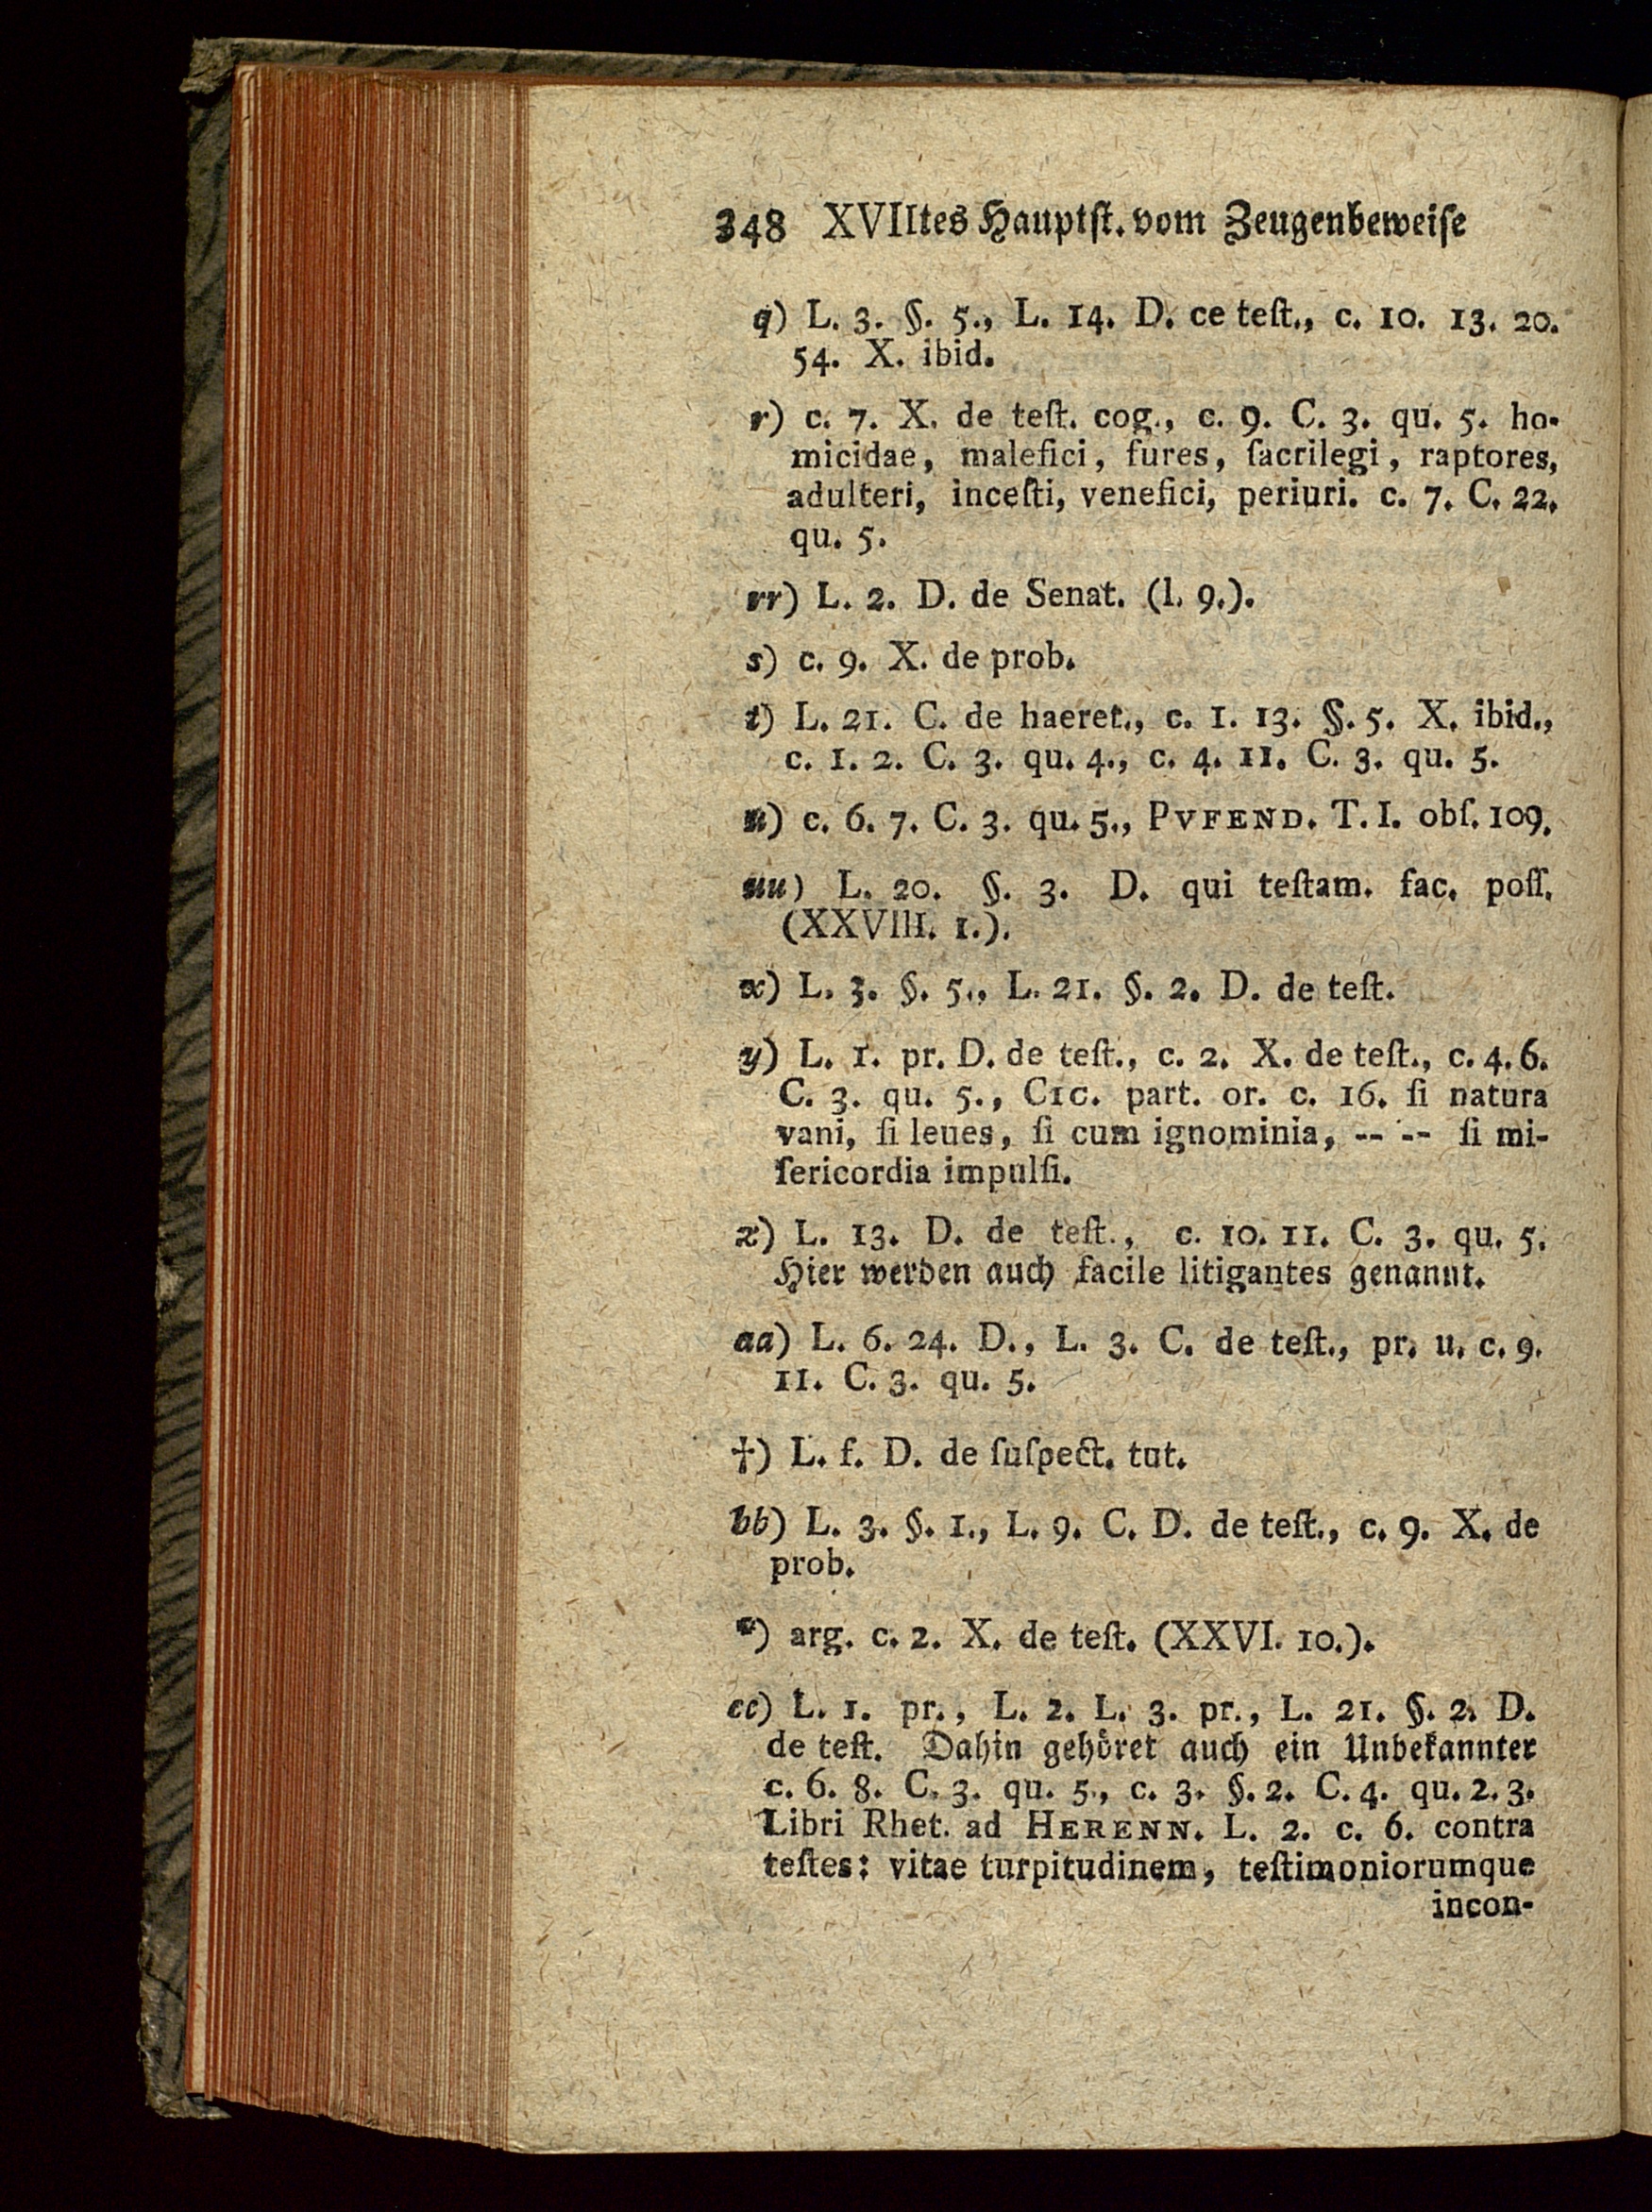 348 XVIItes Hauptst. vom Zeugenbeweise
q) L. 3. §. 5., L. 14. D. ce teſt., c. 10. 13. 20.
54. X. ibid.
r) c. 7. X. de teſt. cog., c. 9. C. 3. qu. 5. ho-
micidae, malefici, fures, ſacrilegi, raptores,
adulteri, inceſti, venefici, periuri. c. 7. C. 22.
qu. 5.
rr) L. 2. D. de Senat. (l. 9.).
s) c. 9. X. de prob.
t) L. 21. C. de haeret., c. 1. 13. §. 5. X. ibid.,
c. 1. 2. C. 3. qu. 4., c. 4. 11. C. 3. qu. 5.
u) c. 6. 7. C. 3. qu. 5., PVFEND. T. I. obſ. 109.
uu) L. 20. §. 3. D. qui teſtam. fac. poſſ.
(XXVIII. 1.).
x) L. 3. §. 5., L. 21. §. 2. D. de teſt.
y) L. 1. pr. D. de teſt., c. 2. X. de teſt., c. 4. 6.
C. 3. qu. 5., CIC. part. or. c. 16. ſi natura
vani, ſi leues, ſi cum ignominia, -- -- ſi mi-
ſericordia impulſi.
z) L. 13. D. de teſt., c. 10. 11. C. 3. qu. 5.
Hier werden auch facile litigantes genannt.
aa) L. 6. 24. D., L. 3. C. de teſt., pr. u. c. 9.
11. C. 3. qu. 5.
†) L. f. D. de ſuſpect. tut.
bb) L. 3. §. 1., L. 9. C. D. de teſt., c. 9. X. de
prob.
*) arg. c. 2. X. de teſt. (XXVI. 10.).
cc) L. 1. pr., L. 2. L. 3. pr., L. 21. §. 2. D.
de teſt. Dahin gehöret auch ein Unbekannter
c. 6. 8. C. 3. qu. 5., c. 3. §. 2. C. 4. qu. 2. 3.
Libri Rhet. ad HERENN. L. 2. c. 6. contra
teſtes: vitae turpitudinem, teſtimoniorumque
incon-